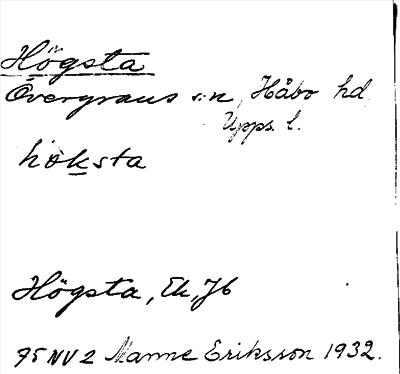 Högsta
Övergrans s:n, Håbo hd.
Upps. l.
hö̀ksta
Högsta, Ek, Jb
95 NV 2 Manne Eriksson 1932.